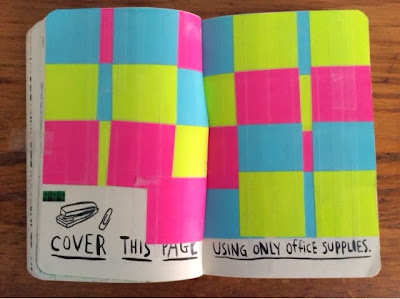 COVER THIS PAGE USING ONLY OFFICE SUPPLIES.